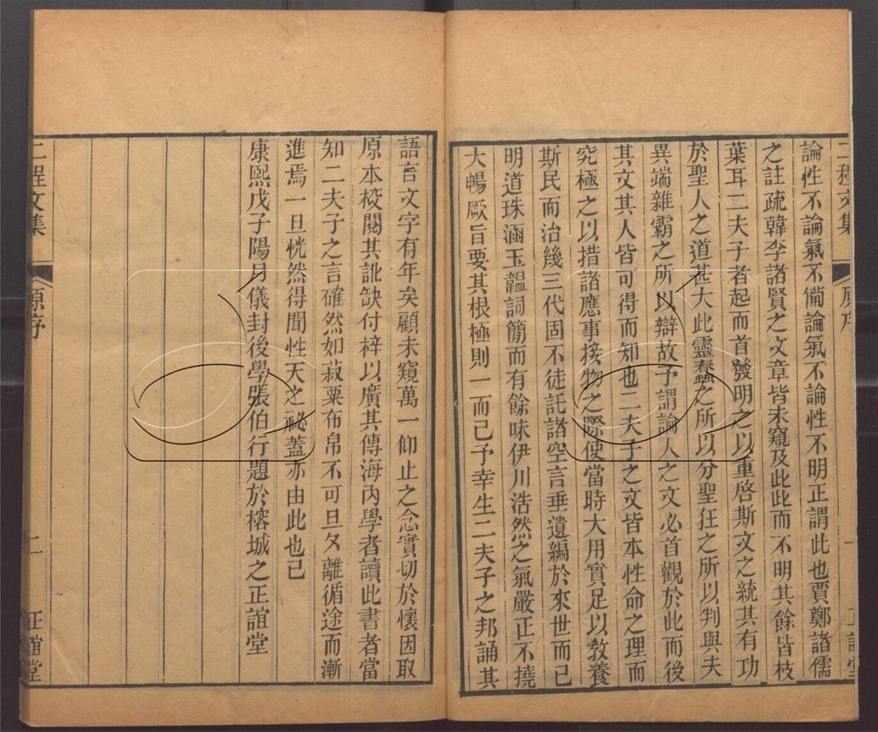 二程文集 原序 一 正誼堂
論性不論氣不備論氣不論性不明正謂此也賈鄭諸儒
之註疏韓李諸賢之文章皆未窺及此此而不明其餘皆枝
葉耳二夫子者起而首發明之以重啓斯文之統其有功
於聖人之道甚大此靈蠢之所以分聖狂之所以判與夫
異端雜霸之所以辯故予謂論人之文必首觀於此而後
其文其人皆可得而知也二夫子之文皆本性命之理而
究極之以措諸應事接物之際使當時大用實足以教養
斯民而治幾三代固不徒託諸空言垂遺編於來世而已
明道珠涵玉韞詞簡而有餘味伊川浩然之氣嚴正不撓
大暢厥旨要其根極則一而已予幸生二夫子之邦誦其
語言文字有年矣顧未窺萬一仰止之念實切於懷因取
原本校閱其訛缺付梓以廣其傳海內學者讀此書者當
知二夫子之言確然如菽粟布帛不可旦夕離循途而漸
進焉一旦恍然得聞性天之祕蓋亦由此也已
康熙戊子陽月儀封後學張伯行題於榕城之正誼堂
二程文集 原序 二 正誼堂